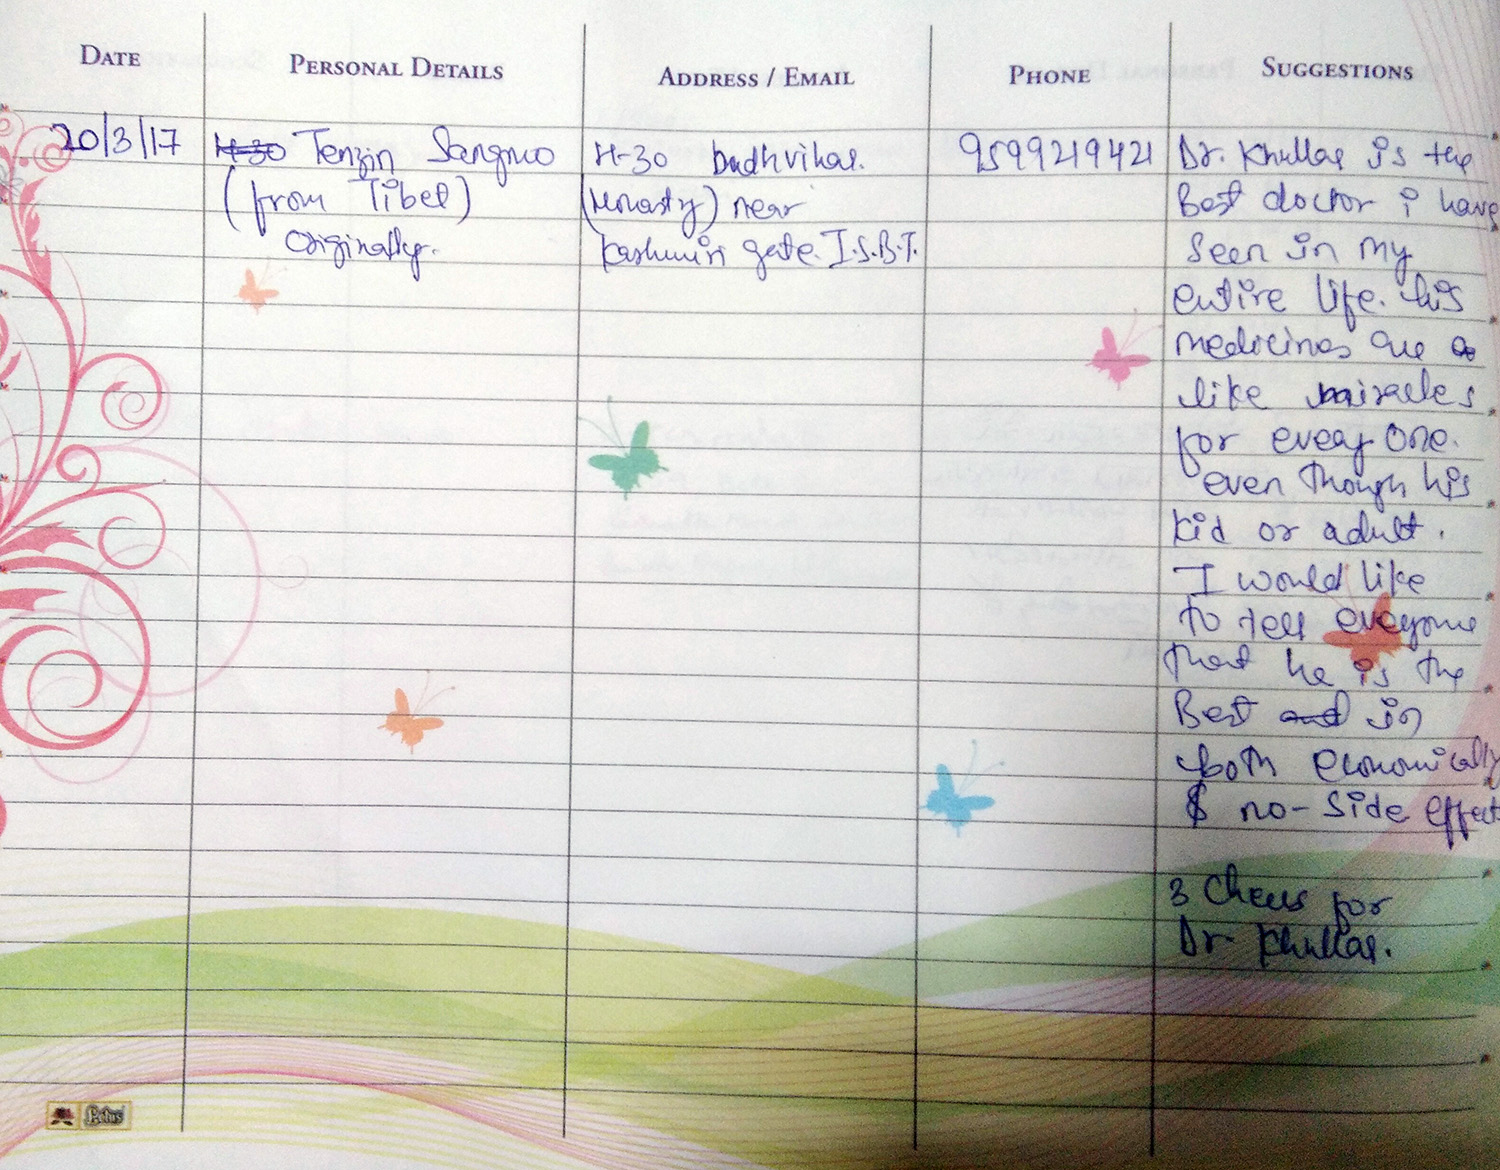 DATE
PERSONAL DETAILS
ADDRESS / EMAIL
PHONE
SUGGESTIONS
20/3/17
H-30 Tenzin Sangmo
(from Tibet)
Originally.
H-30 budhvihar.
(Monasty) near
kashmiri gate. I.S.B.T.
9599219421
Dr. Khullar is the
Best doctor i have
seen in my
entire life. his
medicines are
like miracles
for every one.
even though his
kid or adult.
I would like
to tell everyone
that he is the
Best and in
both economically
$ no-side effect
3 cheers for
Dr. Khullar.
Petus